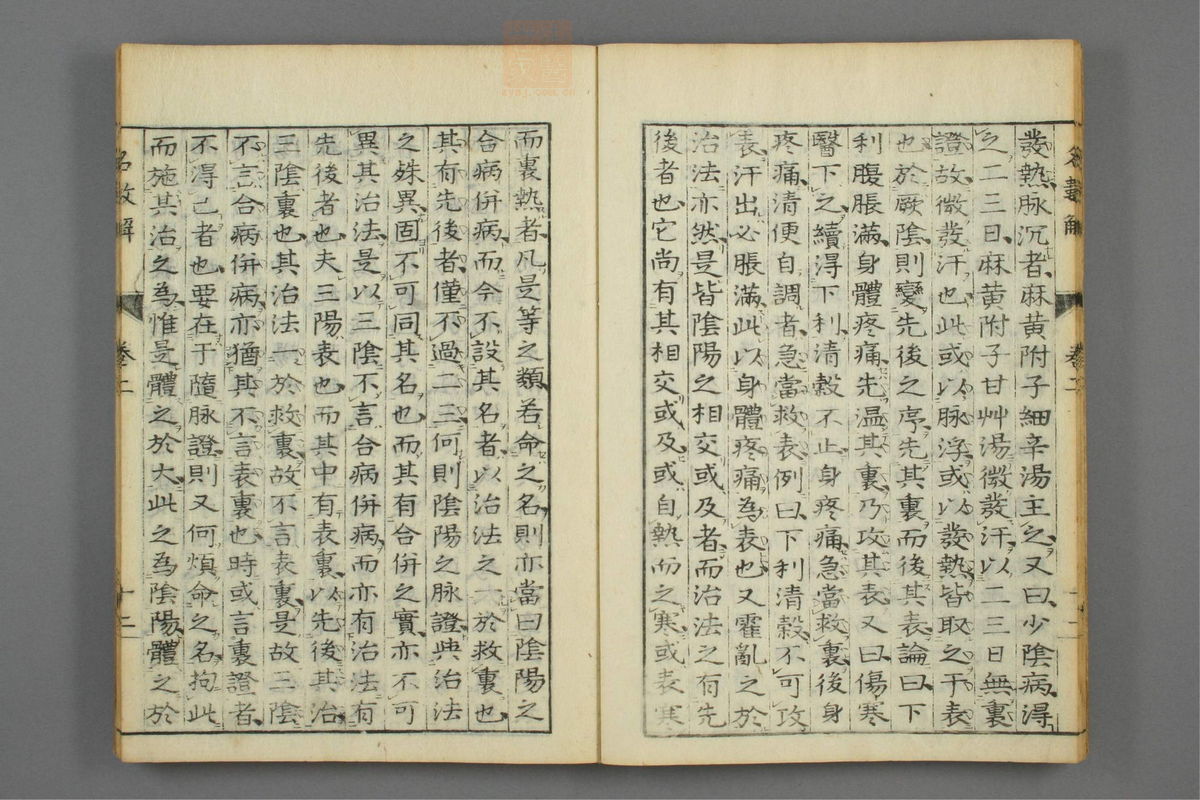 發熱脉沉者麻黄附子細辛湯主之又曰少陰病得
之二三日麻黄附子甘艸湯微發汗以二三日無裏
證故微發汗也此或以脉浮或以發熱皆取之于表
也於厥陰則變先後之序先其裏而後其表論曰下
利腹脹滿身體疼痛先温其裏乃攻其表又曰傷寒
醫下之續得下利清穀不止身疼痛急當救裏後身
疼痛清便自調者急當救表例曰下利清穀不可攻
表汗出必脹滿此以身體疼痛為表也又霍亂之於
治法亦然是皆陰陽之相交或及者而治法之有先
後者也它尚有其相交或及或自熱而之寒或表寒
而裏熱者凡是等之類若命之名則亦當曰陰陽之
合病併病而今不設其名者以治法之一於救裏也
其有先後者僅不過二三何則陰陽之脉證與治法
之殊異固不可同其名也而其有合併之實亦不可
異其治法是以三陰不言合病併病而亦有治法有
先後者也夫三陽表也而其中有表裏以先後其治
三陰裏也其治法一於救裏故不言表裏是故三陰
不言合病併病亦猶其不言表裏也時或言裏證者
不得已者也要在于隨脉證則又何煩命之名拘此
而施其治之為惟是體之於大此之為陰陽體之於
名數解 卷二 十二